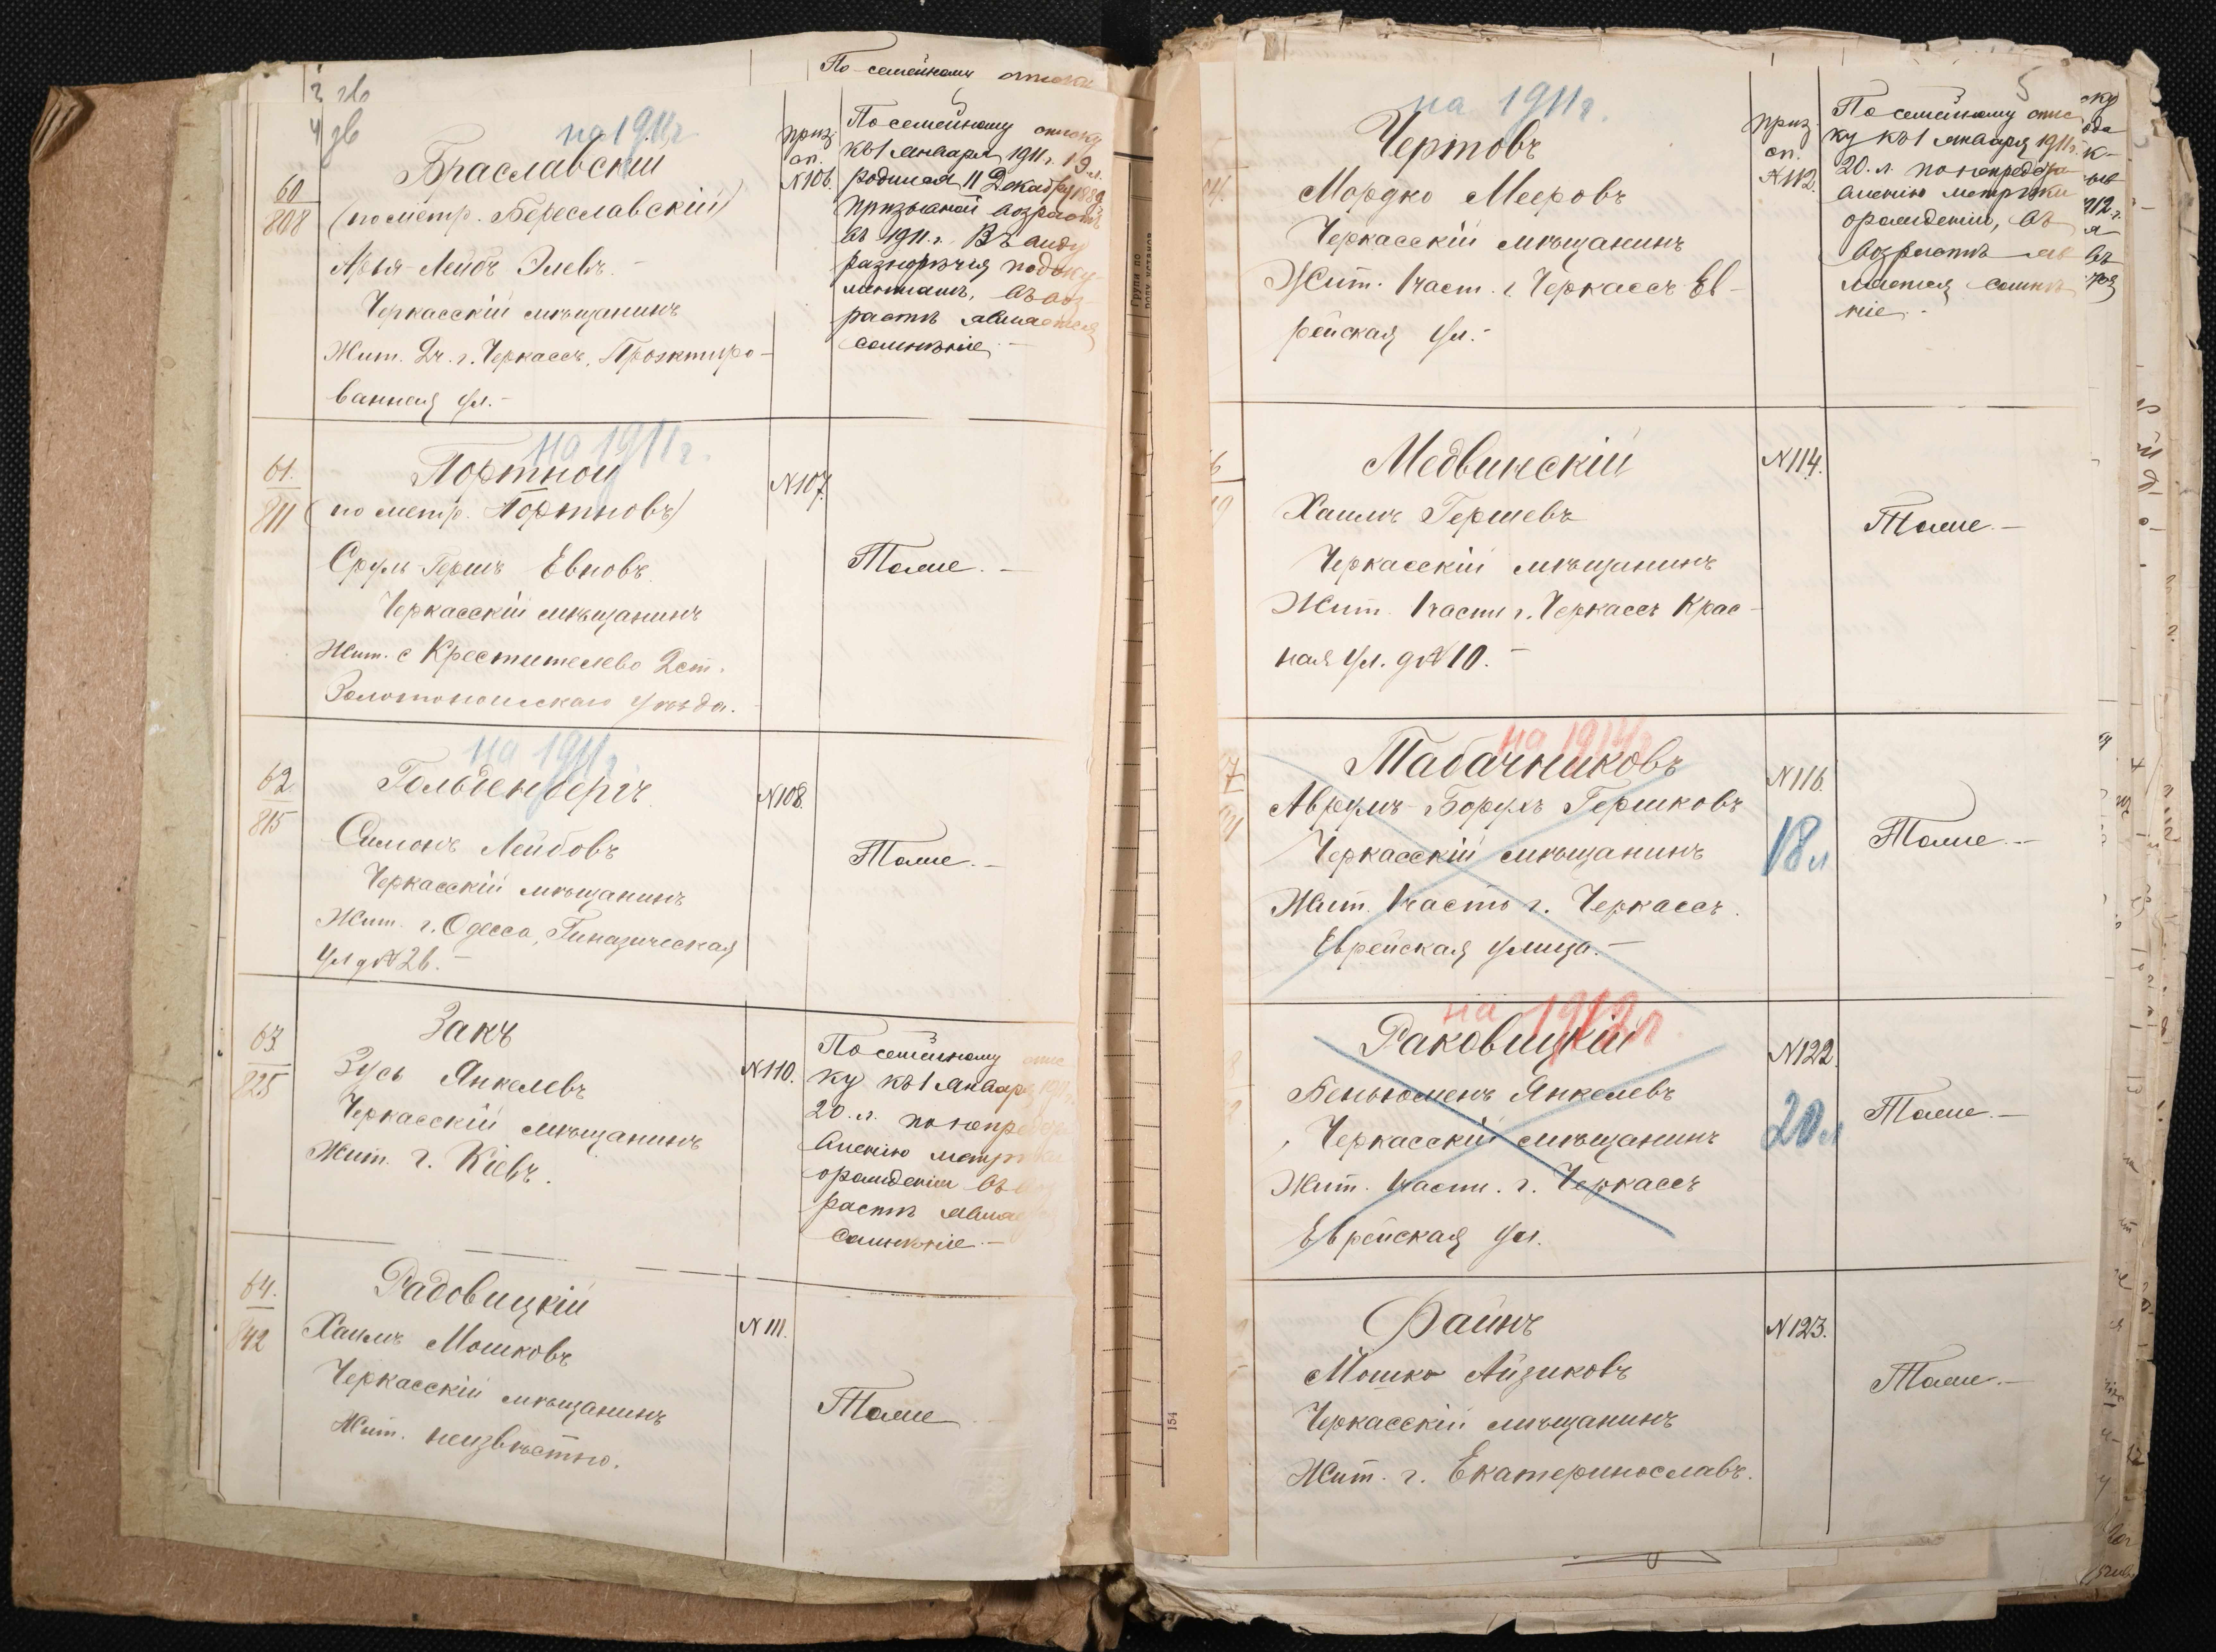 По семейному списку
на 1911 г
60
808
Браславскій
(по метр. Береславскій)
Арья-Лейбъ Элевъ. -
Черкасскій мѣщанинъ
Жит. 2ч. г. Черкассъ, Проэктиро-
ванная ул. -
приз.
сп.
№106.
По семейному списку
къ 1 Января 1911 г. 19 л.
родился 11 Декабря 1889
призывной возрастъ
въ 1911 г. Въ виду
разнорѣчія по доку-
ментамъ, въ воз-
растѣ является
сомнѣніе. -
на 1911 г.
61.
811
Портной
(по метр. Портновъ)
Сруль-Гершъ Евновъ.
Черкасскій мѣщанинъ
Жит. с Крестителево 2 ст.
Золотоношскаго уѣзда. -
№107.
Тоже. -
на 1911 г.
62
815
Гольденбергъ
Симонъ Лейбовъ
Черкасскій мѣщанинъ
Жит. г. Одесса, Гиназическая
ул д №26. -
№108.
Тоже. -
63.
825
Закъ
Зусь Янкелевъ
Черкасскій мѣщанинъ
Жит. г. Кіевъ.
№110.
По семейному спис
ку къ 1 Января 1911 г.
20. л. по непредста
вленію метрики
о рожденіи въ воз
растѣ является
сомнѣніе. -
64.
842
Радовицкій
Хаимъ Мошковъ
Черкасскій мѣщанинъ
Жит. неизвѣстно.
№111.
Тоже
5
на 1911 г.
Чертовъ
Мордко Мееровъ
Черкасскій мѣщанинъ
Жит. 1 част. г. Черкассъ Ев-
рейская ул. -
приз.
сп.
№112.
По семейному спис
ку къ 1 Января 1911 г.
20. л. по непредста
вленію метрики
о рожденіи, въ
возрастѣ яв
ляется сомнѣ
ніе. -
Медвинскій
Хаимъ Гершевъ
Черкасскій мѣщанинъ
Жит. 1 части г. Черкассъ Крас-
ная ул. д №10. -
№114.
Тоже. -
на 1914 г
Табачниковъ
Аврумъ-Борухъ Гершковъ
Черкасскій мѣщанинъ
Жит. 1 части г. Черкассъ.
Еврейская улица. -
№116.
18 л
Тоже. -
на 1912 г.
Раковицкій
Беньюменъ Янкелевъ
Черкасскій мѣщанинъ
Жит. 1 части. г. Черкассъ
Еврейская ул.
№122.
20 л
Тоже. -
Файнъ
Мошко Айзиковъ
Черкасскій мѣщанинъ
Жит. г. Екатеринославъ.
№123.
Тоже. -
154